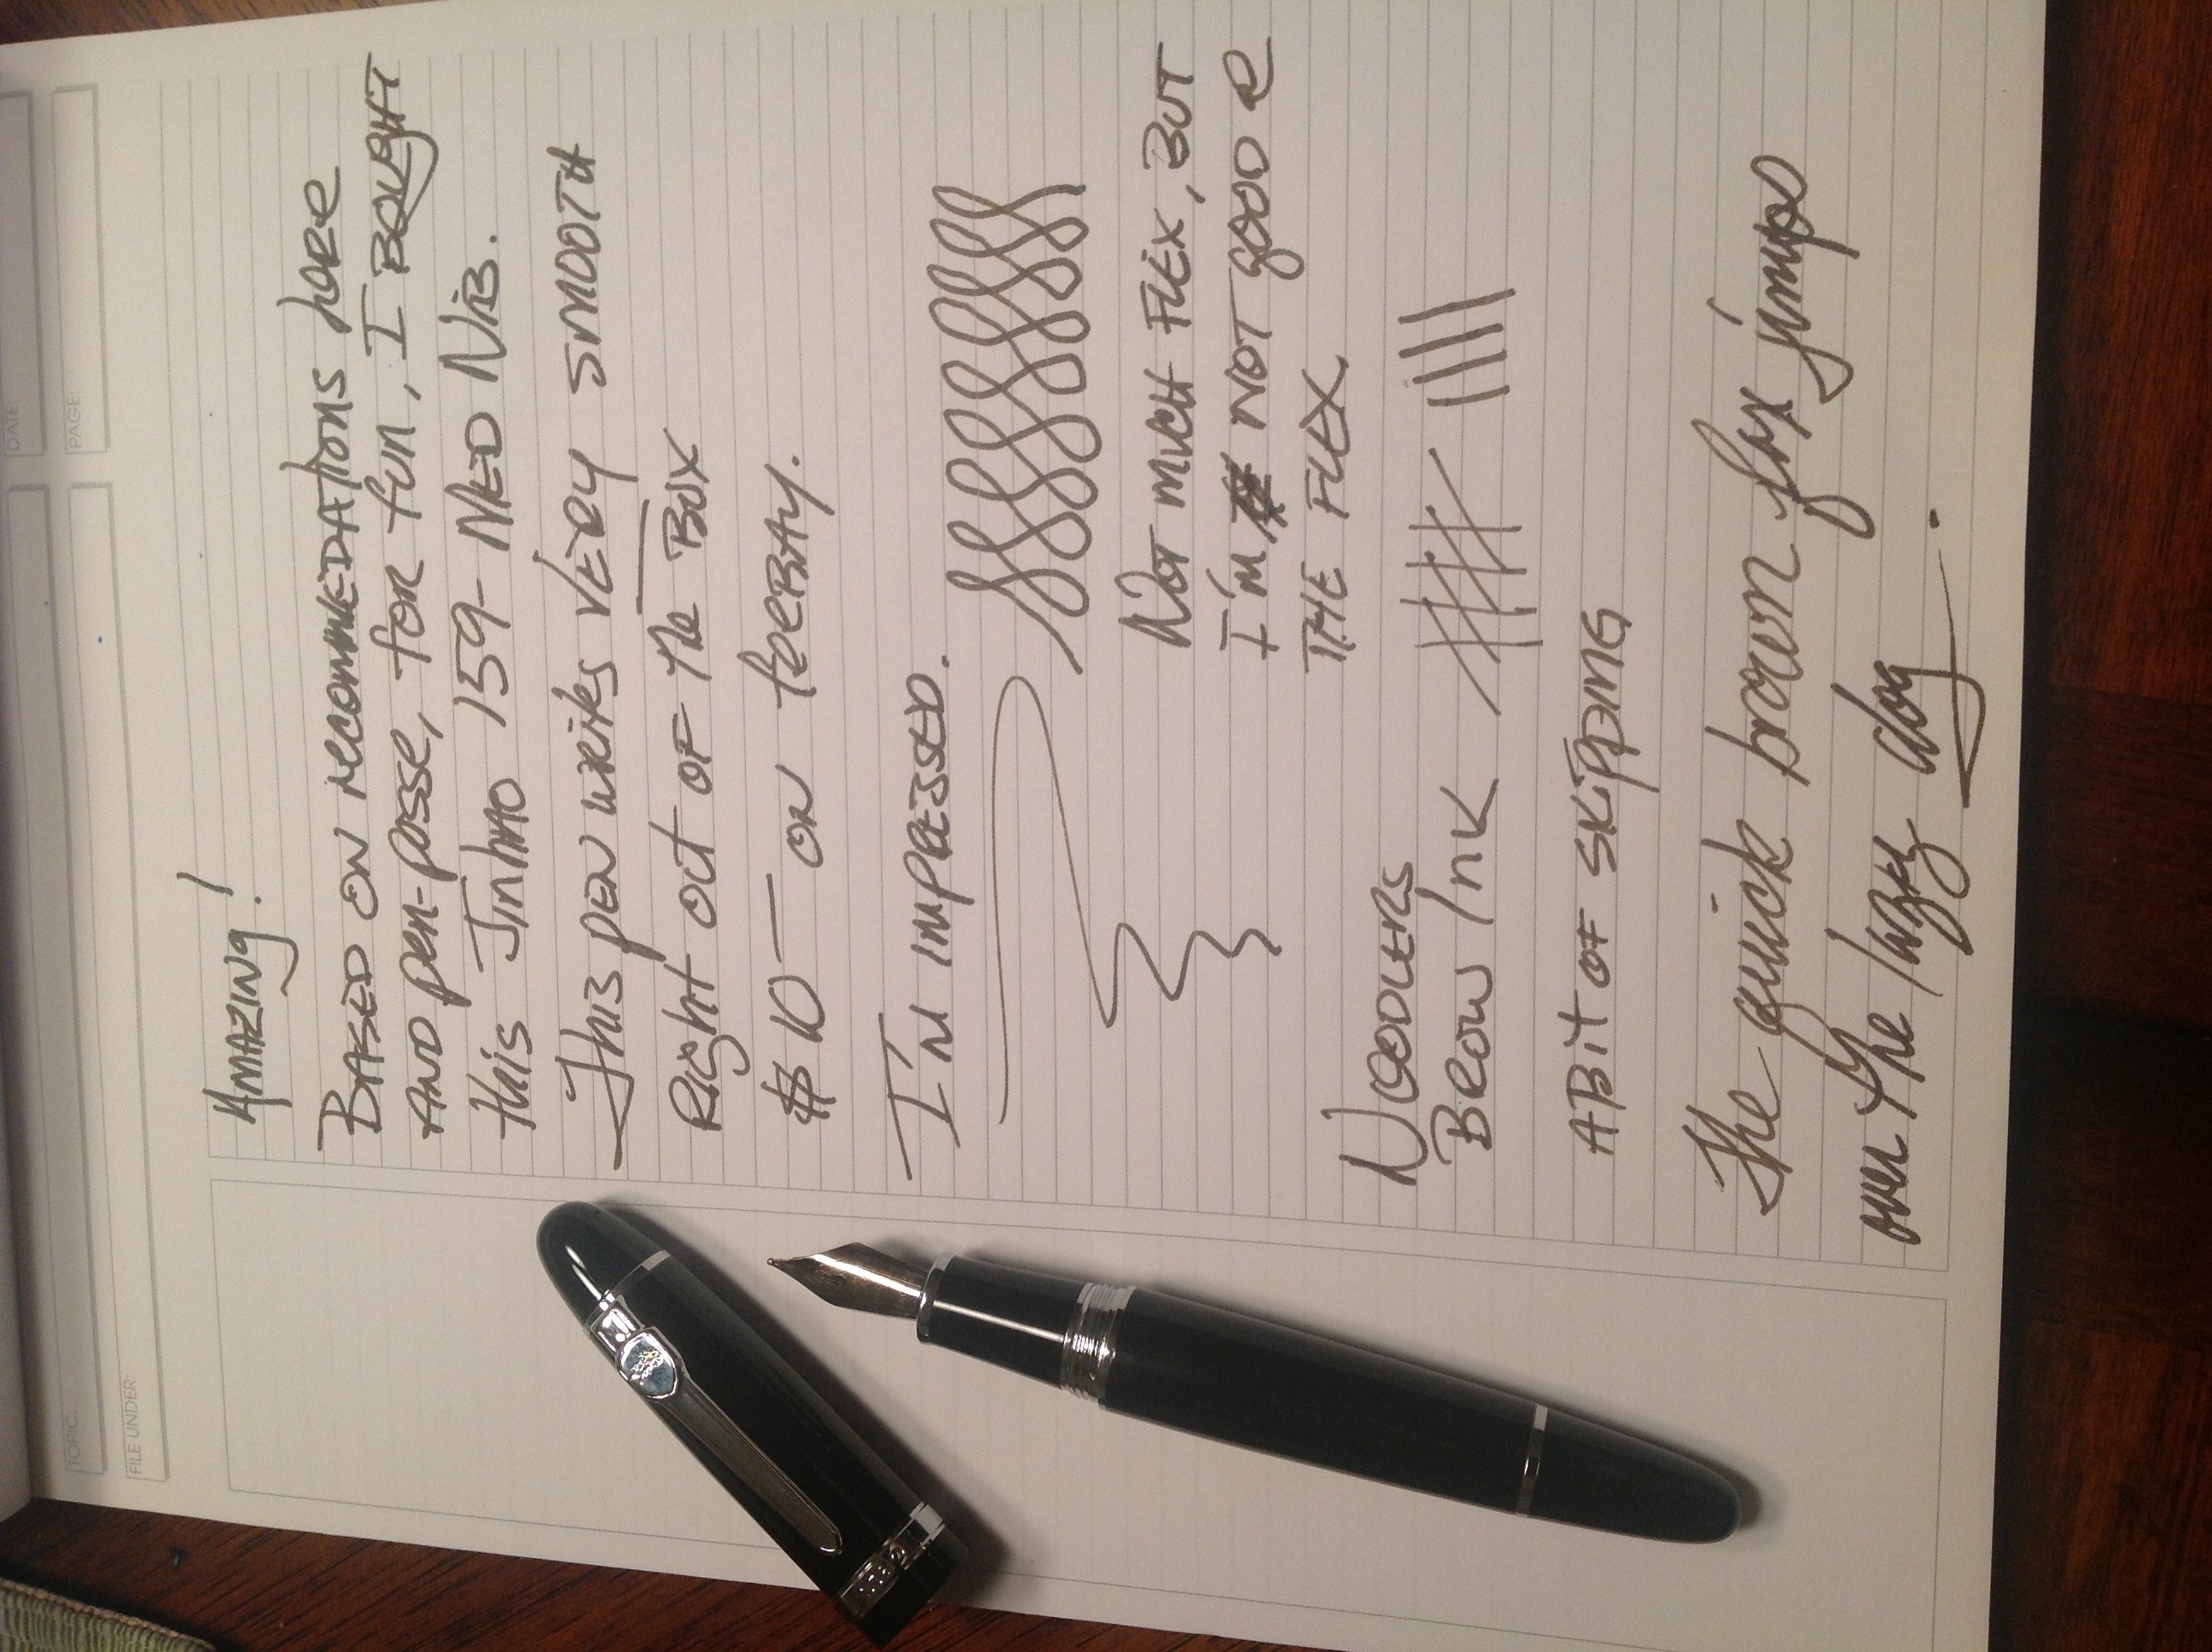 DATE:
PAGE:
TOPIC:
FILE UNDER:
AMAZING!
BASED ON recommEDATIONS here
AND pen-posse, for fun, I BOUGHT
this Jinhao 159- MED NIB.
This pen writes VERY SMOOTH
Right out of the BOX
$10— ON feeBAY.
I'm IMPRESSED.
NOT MUCH FLEX, BUT
I'm NOT GOOD @
THE FLEX.
NOODLERS
Brow Ink
A Bit OF SKIPPING
The quick brown fox jumps
over the lazy dog.
159